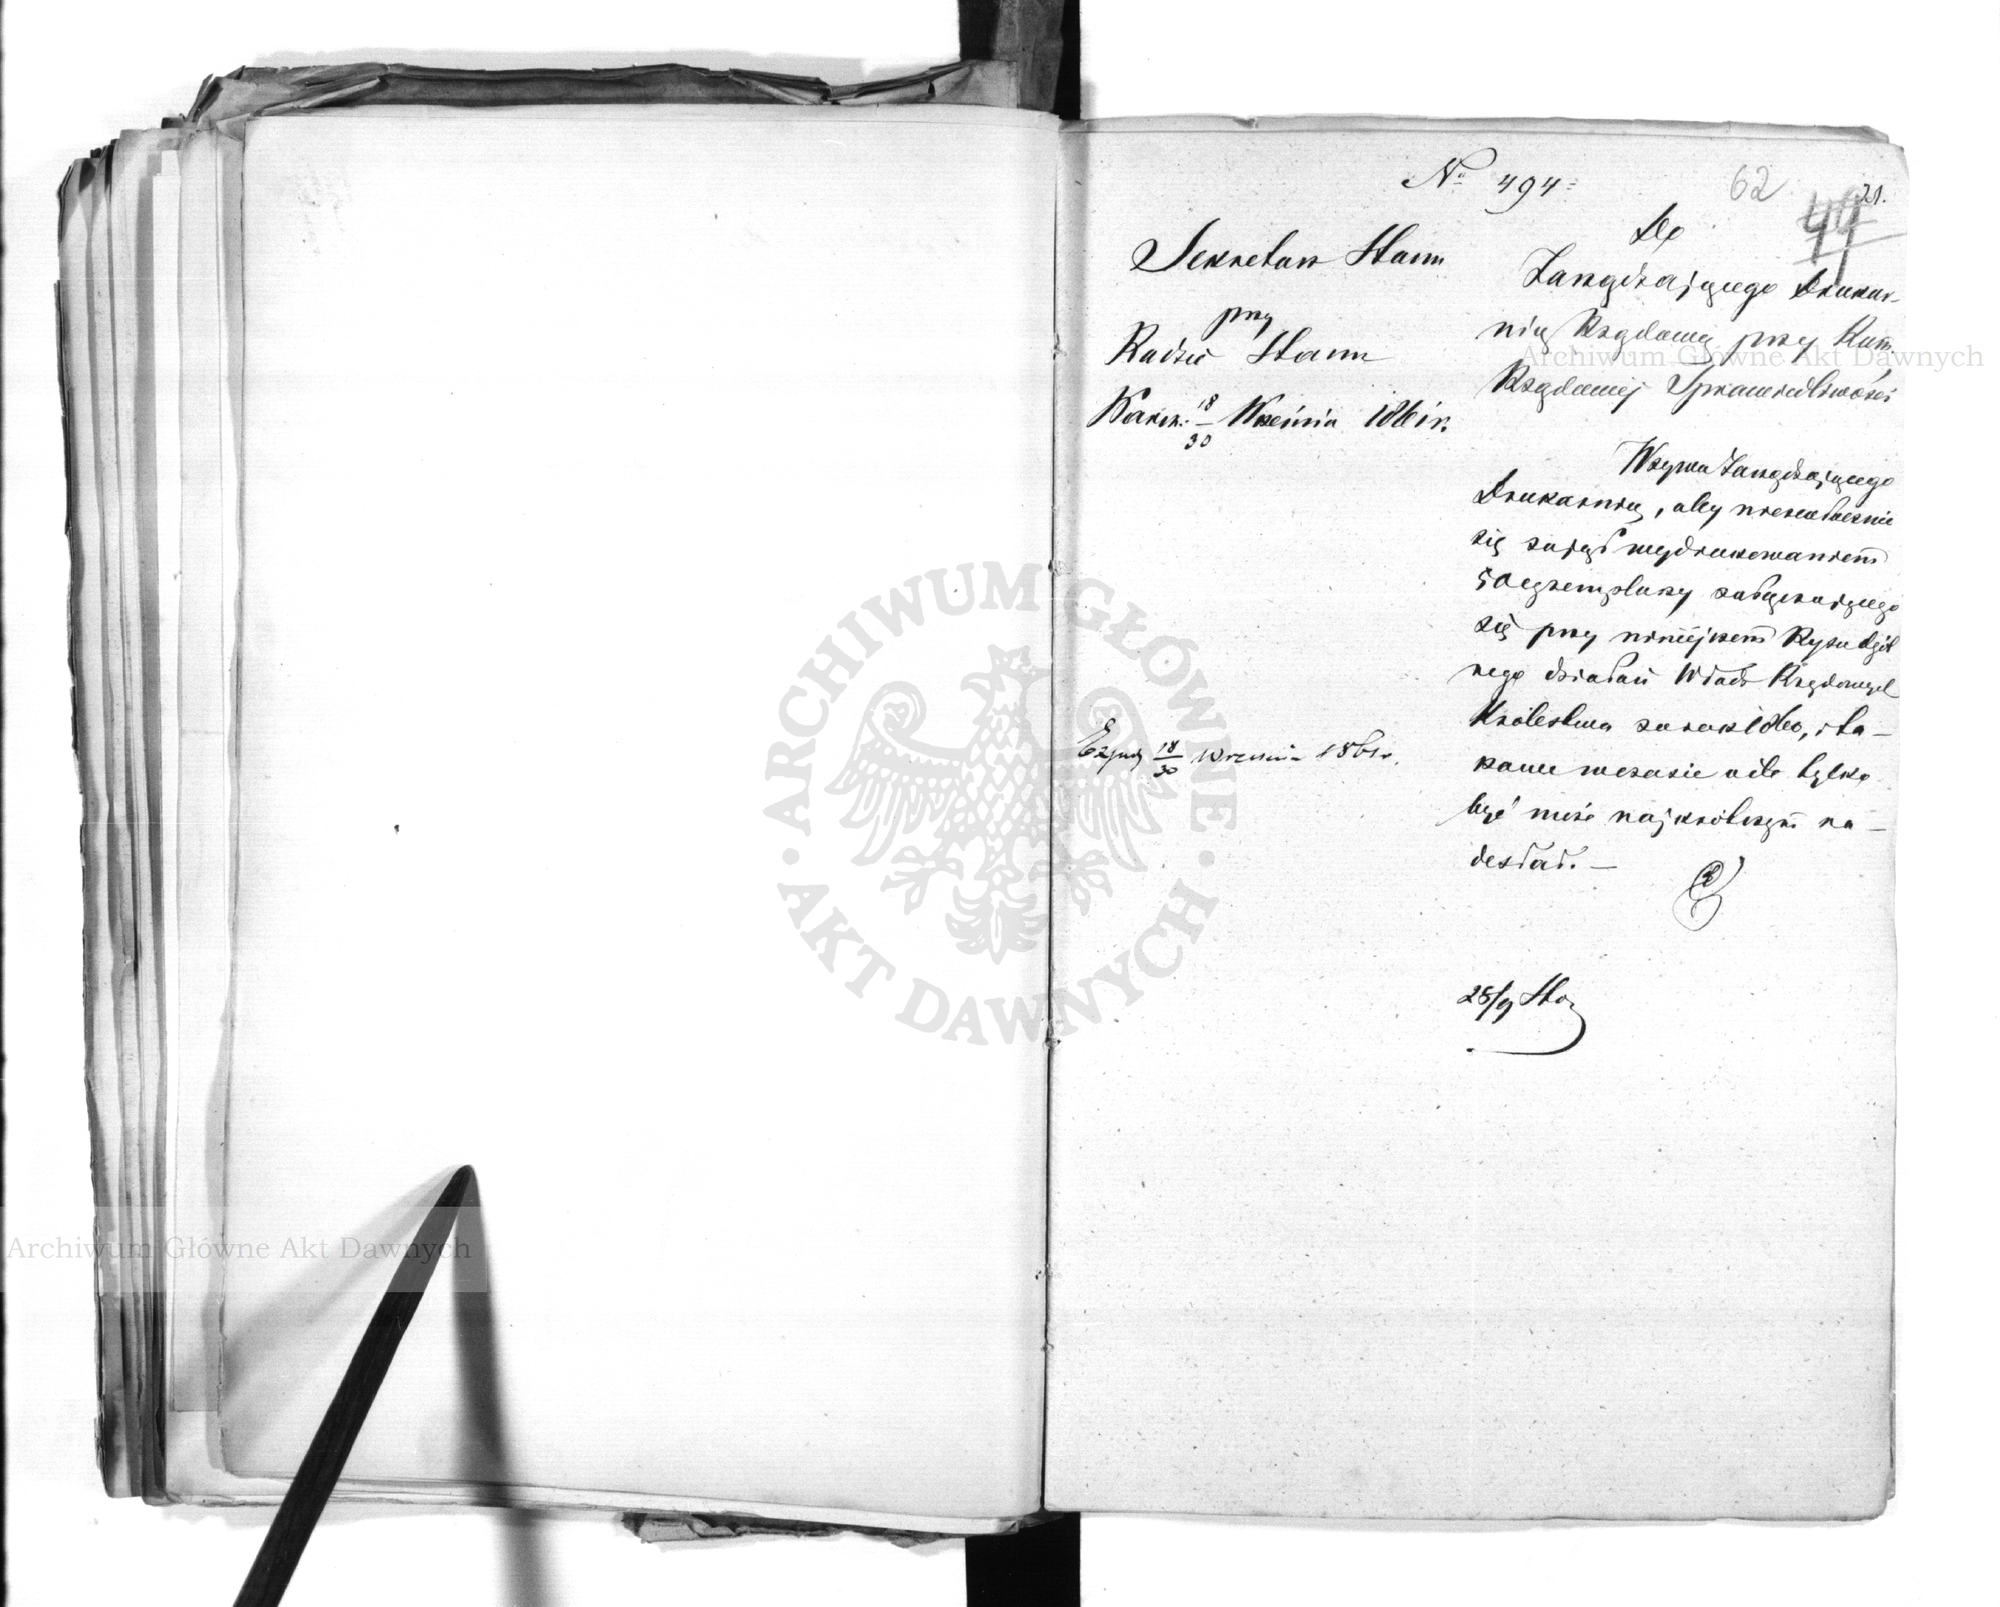 No 494
62
21.
49
Sekretarz Stanu
przy
Radzie Stanu
Warsz. 18/30 Września 1861 r.
Do
Zarządzającego Drukar-
nią Rządową przy Kom.
Rządowej Sprawiedliwości
Wzywa Zarządzającego
Drukarnią, aby niezwłocznie
się zajął wydrukowaniem
50 egzemplarzy załączającego
się przy niniejszem Rysu Ogól
nego działań Władz Rządowych
Królestwa za rok 1860, i ta-
kowe w czasie o ile tylko
być może najkrótszym na-
desłał. —
18/30 Września 1861 r.
28/9
Archiwum Główne Akt Dawnych
Archiwum Główne Akt Dawnych
ARCHIWUM GŁÓWNE
AKT DAWNYCH